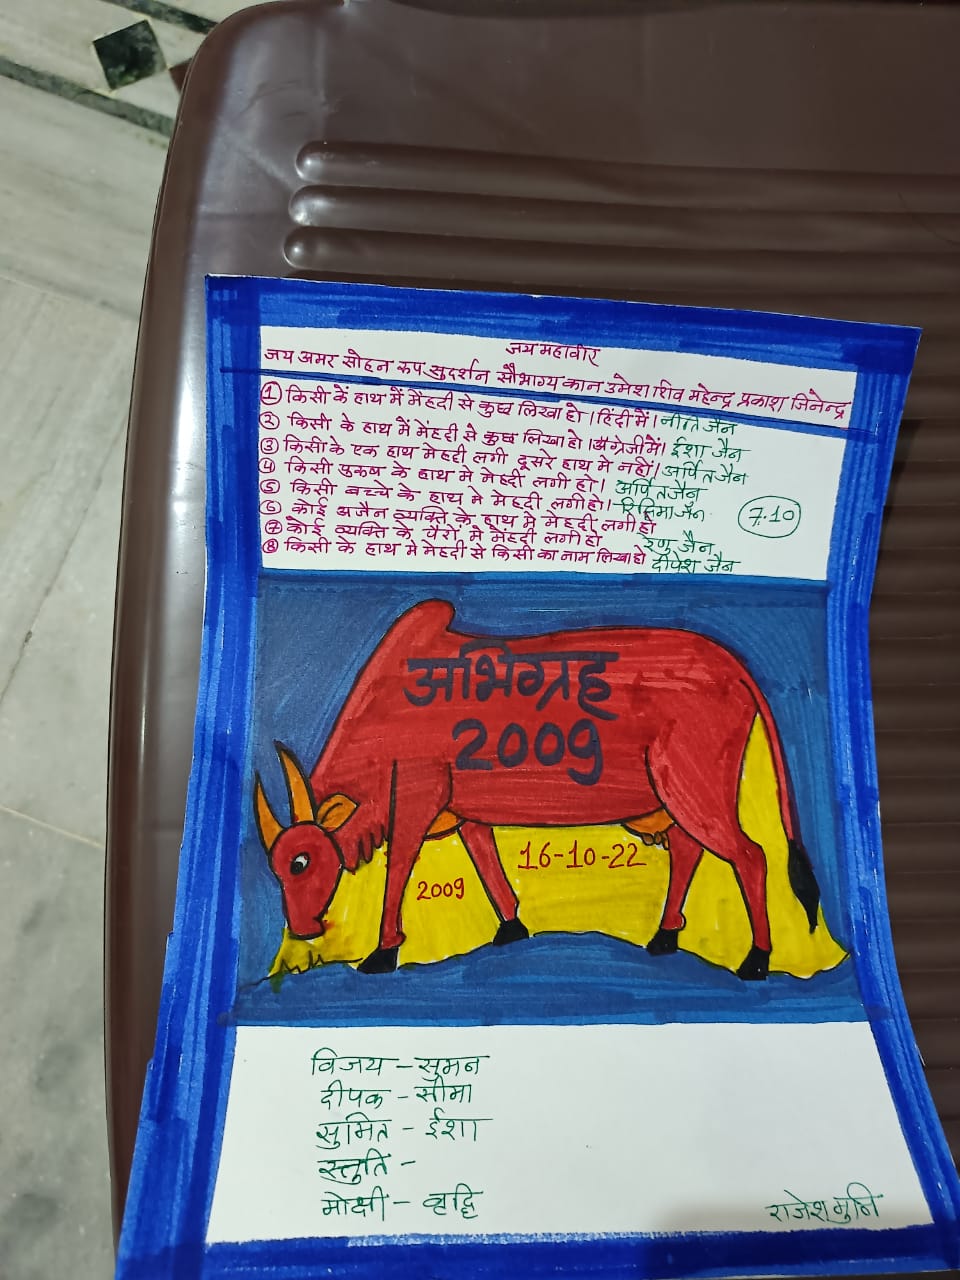 जय महावीर
जय अमर सोहन रूप सुदर्शन सौभाग्य कान उमेश शिव महेन्द्र प्रकाश जिनेन्द्र
① किसी के हाथ में मेंहदी से कुछ लिखा हो । हिंदी में । नीति जैन
② किसी के हाथ में मेंहदी से कुछ लिखा हो । अंग्रेजी में । ईशा जैन
③ किसी के एक हाथ मेहदी लगी दूसरे हाथ मे नहीं । अर्पित जैन
④ किसी पुरुष के हाथ मे मेहदी लगी हो । अर्पित जैन
⑤ किसी बच्चे के हाथ मे मेहदी लगी हो । रिद्धिमा जैन
⑥ कोई अजैन व्यक्ति के हाथ मे मेहदी लगी हो
⑦ कोई व्यक्ति के पैरों मे मेहदी लगी हो रेणु जैन
⑧ किसी के हाथ मे मेहदी से किसी का नाम लिखा हो दीपेश जैन
7.10
अभिग्रह
2009
16-10-22
2009
विजय - सुमन
दीपक - सीमा
सुमित - ईशा
स्तुति -
मोक्षी - वृद्धि
राजेश मुनि